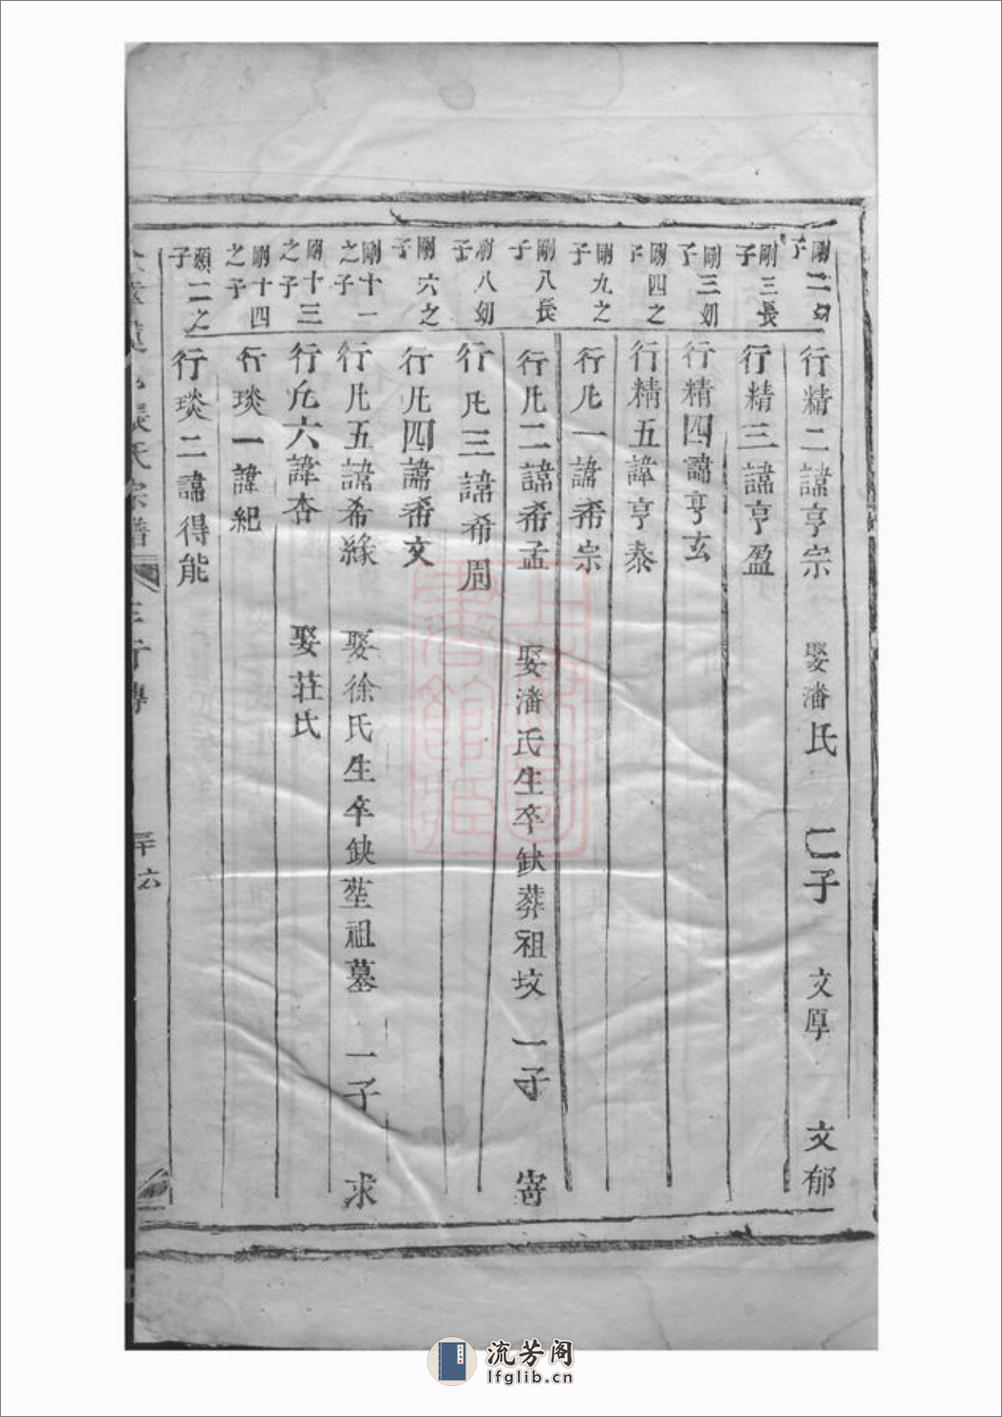 剛二幼子 行精二諱亨宗 娶潘氏 二子 文厚 文郁
剛三長子 行精三諱亨盈
剛三幼子 行精四諱亨玄
剛四之子 行精五諱亨泰
剛九之子 行凡一諱希宗
剛八長子 行凡二諱希孟 娶潘氏生卒缺葬祖坟 一子 寄
剛八幼子 行凡三諱希周
剛六之子 行凡四諱希文
剛十一之子 行凡五諱希緣 娶徐氏生卒缺塟祖墓 一子 求
剛十三之子 行凡六諱杏 娶莊氏
剛十四之子 行琰一諱紀
願二之子 行琰二諱得能
張氏宗譜 行傳 二十六
上海圖書館藏
流芳阁
lfglib.cn